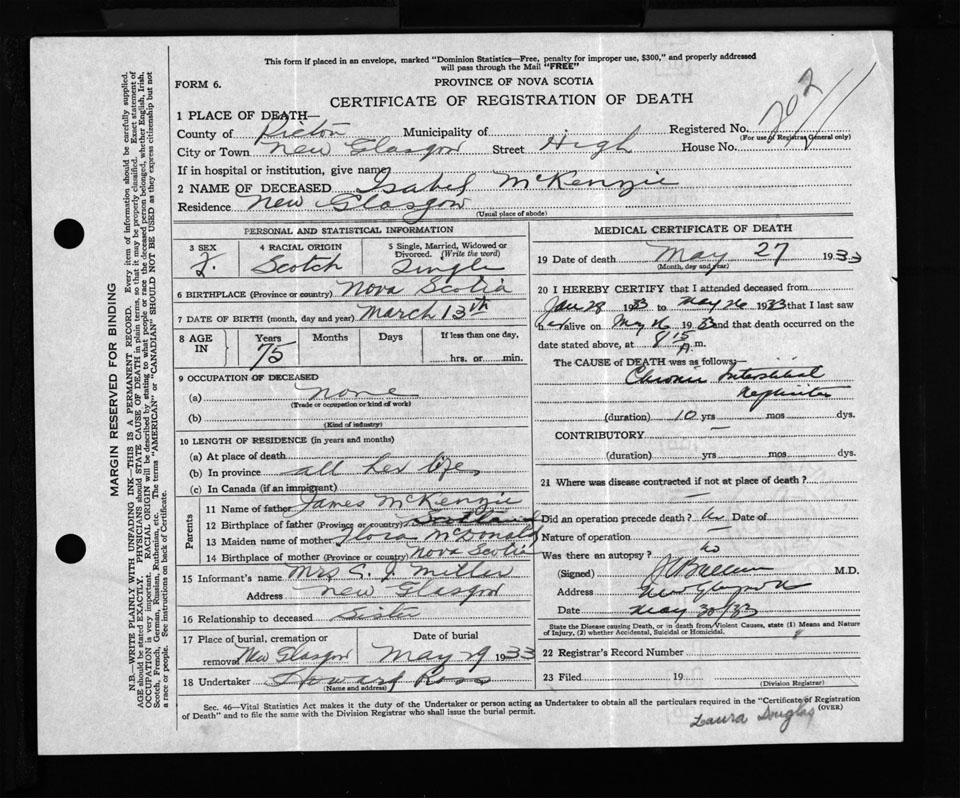 This form if placed in an envelope, marked "Dominion Statistics—Free, penalty for improper use, $300," and properly addressed
will pass through the Mail "FREE"
FORM 6.
PROVINCE OF NOVA SCOTIA
CERTIFICATE OF REGISTRATION OF DEATH
1 PLACE OF DEATH—
County of Pictou Municipality of Registered No. 202
(For use of Registrar General only)
City or Town New Glasgow Street High House No.
If in hospital or institution, give name
2 NAME OF DECEASED Isabel McKenzie
Residence New Glasgow
(Usual place of abode)
PERSONAL AND STATISTICAL INFORMATION
3 SEX 4 RACIAL ORIGIN 5 Single, Married, Widowed or Divorced. (Write the word)
F. Scotch Single
6 BIRTHPLACE (Province or country) Nova Scotia
7 DATE OF BIRTH (month, day and year) March 13th
8 AGE IN Years Months Days If less than one day,
75 hrs. or min.
9 OCCUPATION OF DECEASED
(a) None
(Trade or occupation or kind of work)
(b)
(Kind of industry)
10 LENGTH OF RESIDENCE (in years and months)
(a) At place of death
(b) In province all her life
(c) In Canada (if an immigrant)
Parents
11 Name of father James McKenzie
12 Birthplace of father (Province or country) Scotland
13 Maiden name of mother Flora McDonald
14 Birthplace of mother (Province or country) Nova Scotia
15 Informant's name Mrs Miller
Address New Glasgow
16 Relationship to deceased Sister
17 Place of burial, cremation or removal Date of burial
New Glasgow May 29 1933
18 Undertaker Howard Ross
(Name and address)
MEDICAL CERTIFICATE OF DEATH
19 Date of death May 27 1933
(Month, day and year)
20 I HEREBY CERTIFY that I attended deceased from
Jan 28 1933 to May 26 1933 that I last saw
her alive on May 26 1933 and that death occurred on the
date stated above, at 8.15 A.m.
The CAUSE of DEATH was as follows:—
Chronic Interstitial
Nephritis
(duration) 10 yrs mos dys.
CONTRIBUTORY —
(duration) yrs mos dys.
21 Where was disease contracted if not at place of death?
—
Did an operation precede death? No Date of
Nature of operation —
Was there an autopsy? no
(Signed) M.D.
Address New Glasgow
Date May 30/33
State the Disease causing Death, or in death from Violent Causes, state (1) Means and Nature
of Injury, (2) whether Accidental, Suicidal or Homicidal.
22 Registrar's Record Number
23 Filed 19
(Division Registrar)
Sec. 46—Vital Statistics Act makes it the duty of the Undertaker or person acting as Undertaker to obtain all the particulars required in the "Certificate of Registration
of Death" and to file the same with the Division Registrar who shall issue the burial permit.
(OVER)
Laura Douglas
MARGIN RESERVED FOR BINDING
N.B.—WRITE PLAINLY WITH UNFADING INK—THIS IS A PERMANENT RECORD. Every item of information should be carefully supplied.
AGE should be stated EXACTLY. PHYSICIANS should STATE CAUSE OF DEATH in plain terms, so that it may be properly classified. Exact statement of
OCCUPATION is very important. RACIAL ORIGIN will be described by stating to what people or race the deceased person belonged, whether English, Irish,
Scotch, French, German, Russian, Ruthenian, etc. The terms "AMERICAN" or "CANADIAN" SHOULD NOT BE USED as they express citizenship but not
a race or people. See instructions on back of Certificate.